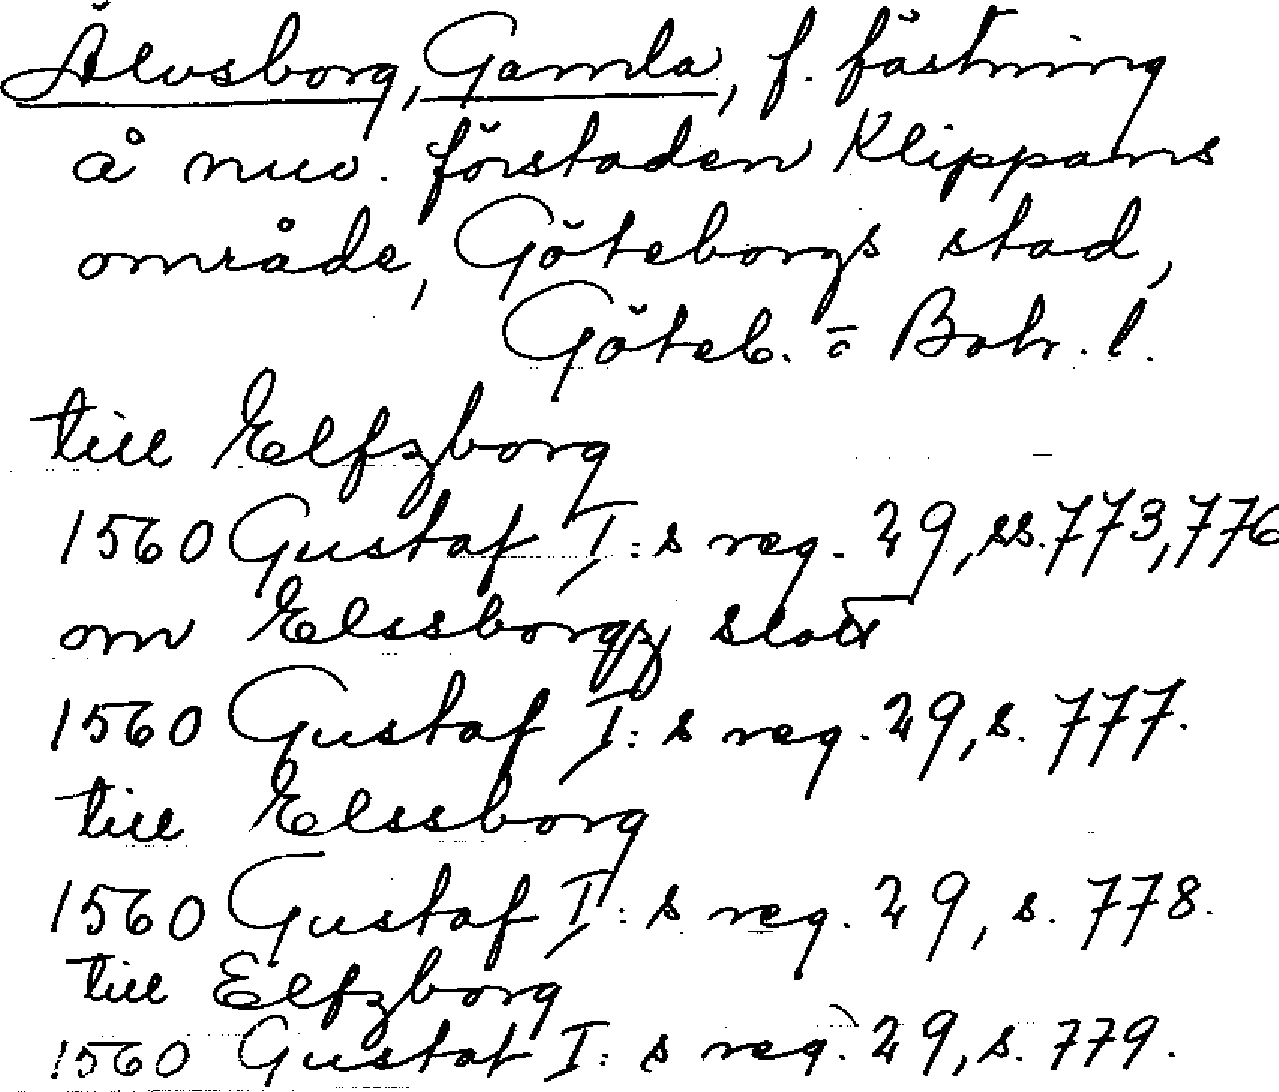 Älvsborg, Gamla, f. fästning
å nuv. förstaden Klippans
område, Göteborgs stad,
Göteb. o Boh. l.
till Elfzborg
1560 Gustaf I:s reg. 29, ss. 773, 776
om Elssborgz slott
1560 Gustaf I:s reg. 29, s. 777.
till Elssborg
1560 Gustaf I:s reg. 29, s. 778.
till Elfzborg
1560 Gustaf I:s reg. 29, s. 779.